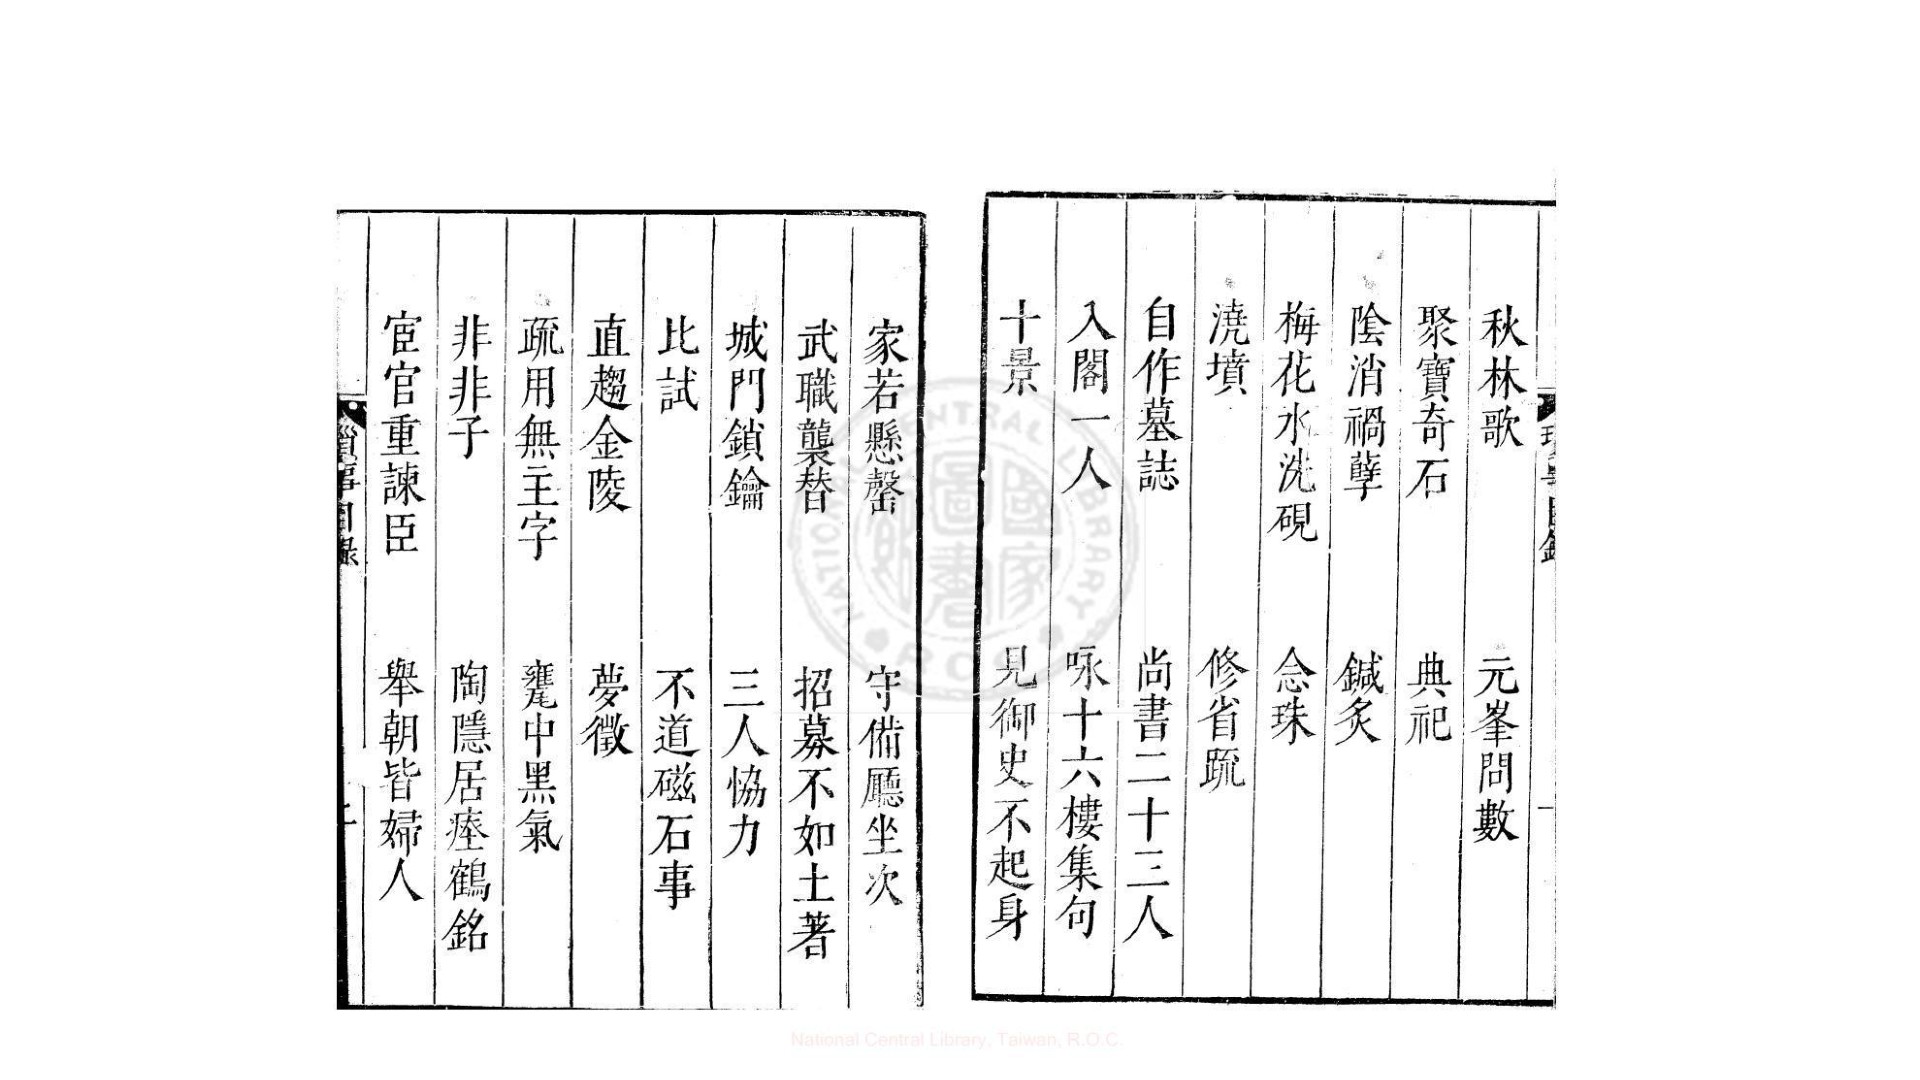 秋林歌　元峯問數
聚寶奇石　典祀
陰消禍孽　鍼炙
梅花水洗硯　念珠
澆墳　修省䟽
自作墓誌　尚書二十三人
入閣一人　咏十六樓集句
十景　見御史不起身
家若懸罄　守備廳坐次
武職襲替　招募不如土著
城門鎖鑰　三人恊力
比試　不道磁石事
直趨金陵　夢徵
疏用無主字　甕中黑氣
非非子　陶隱居瘞鶴銘
宦官重諫臣　舉朝皆婦人
瑣事目錄
NATIONAL CENTRAL LIBRARY R.O.C.
國家圖書館
National Central Library, Taiwan, R.O.C.